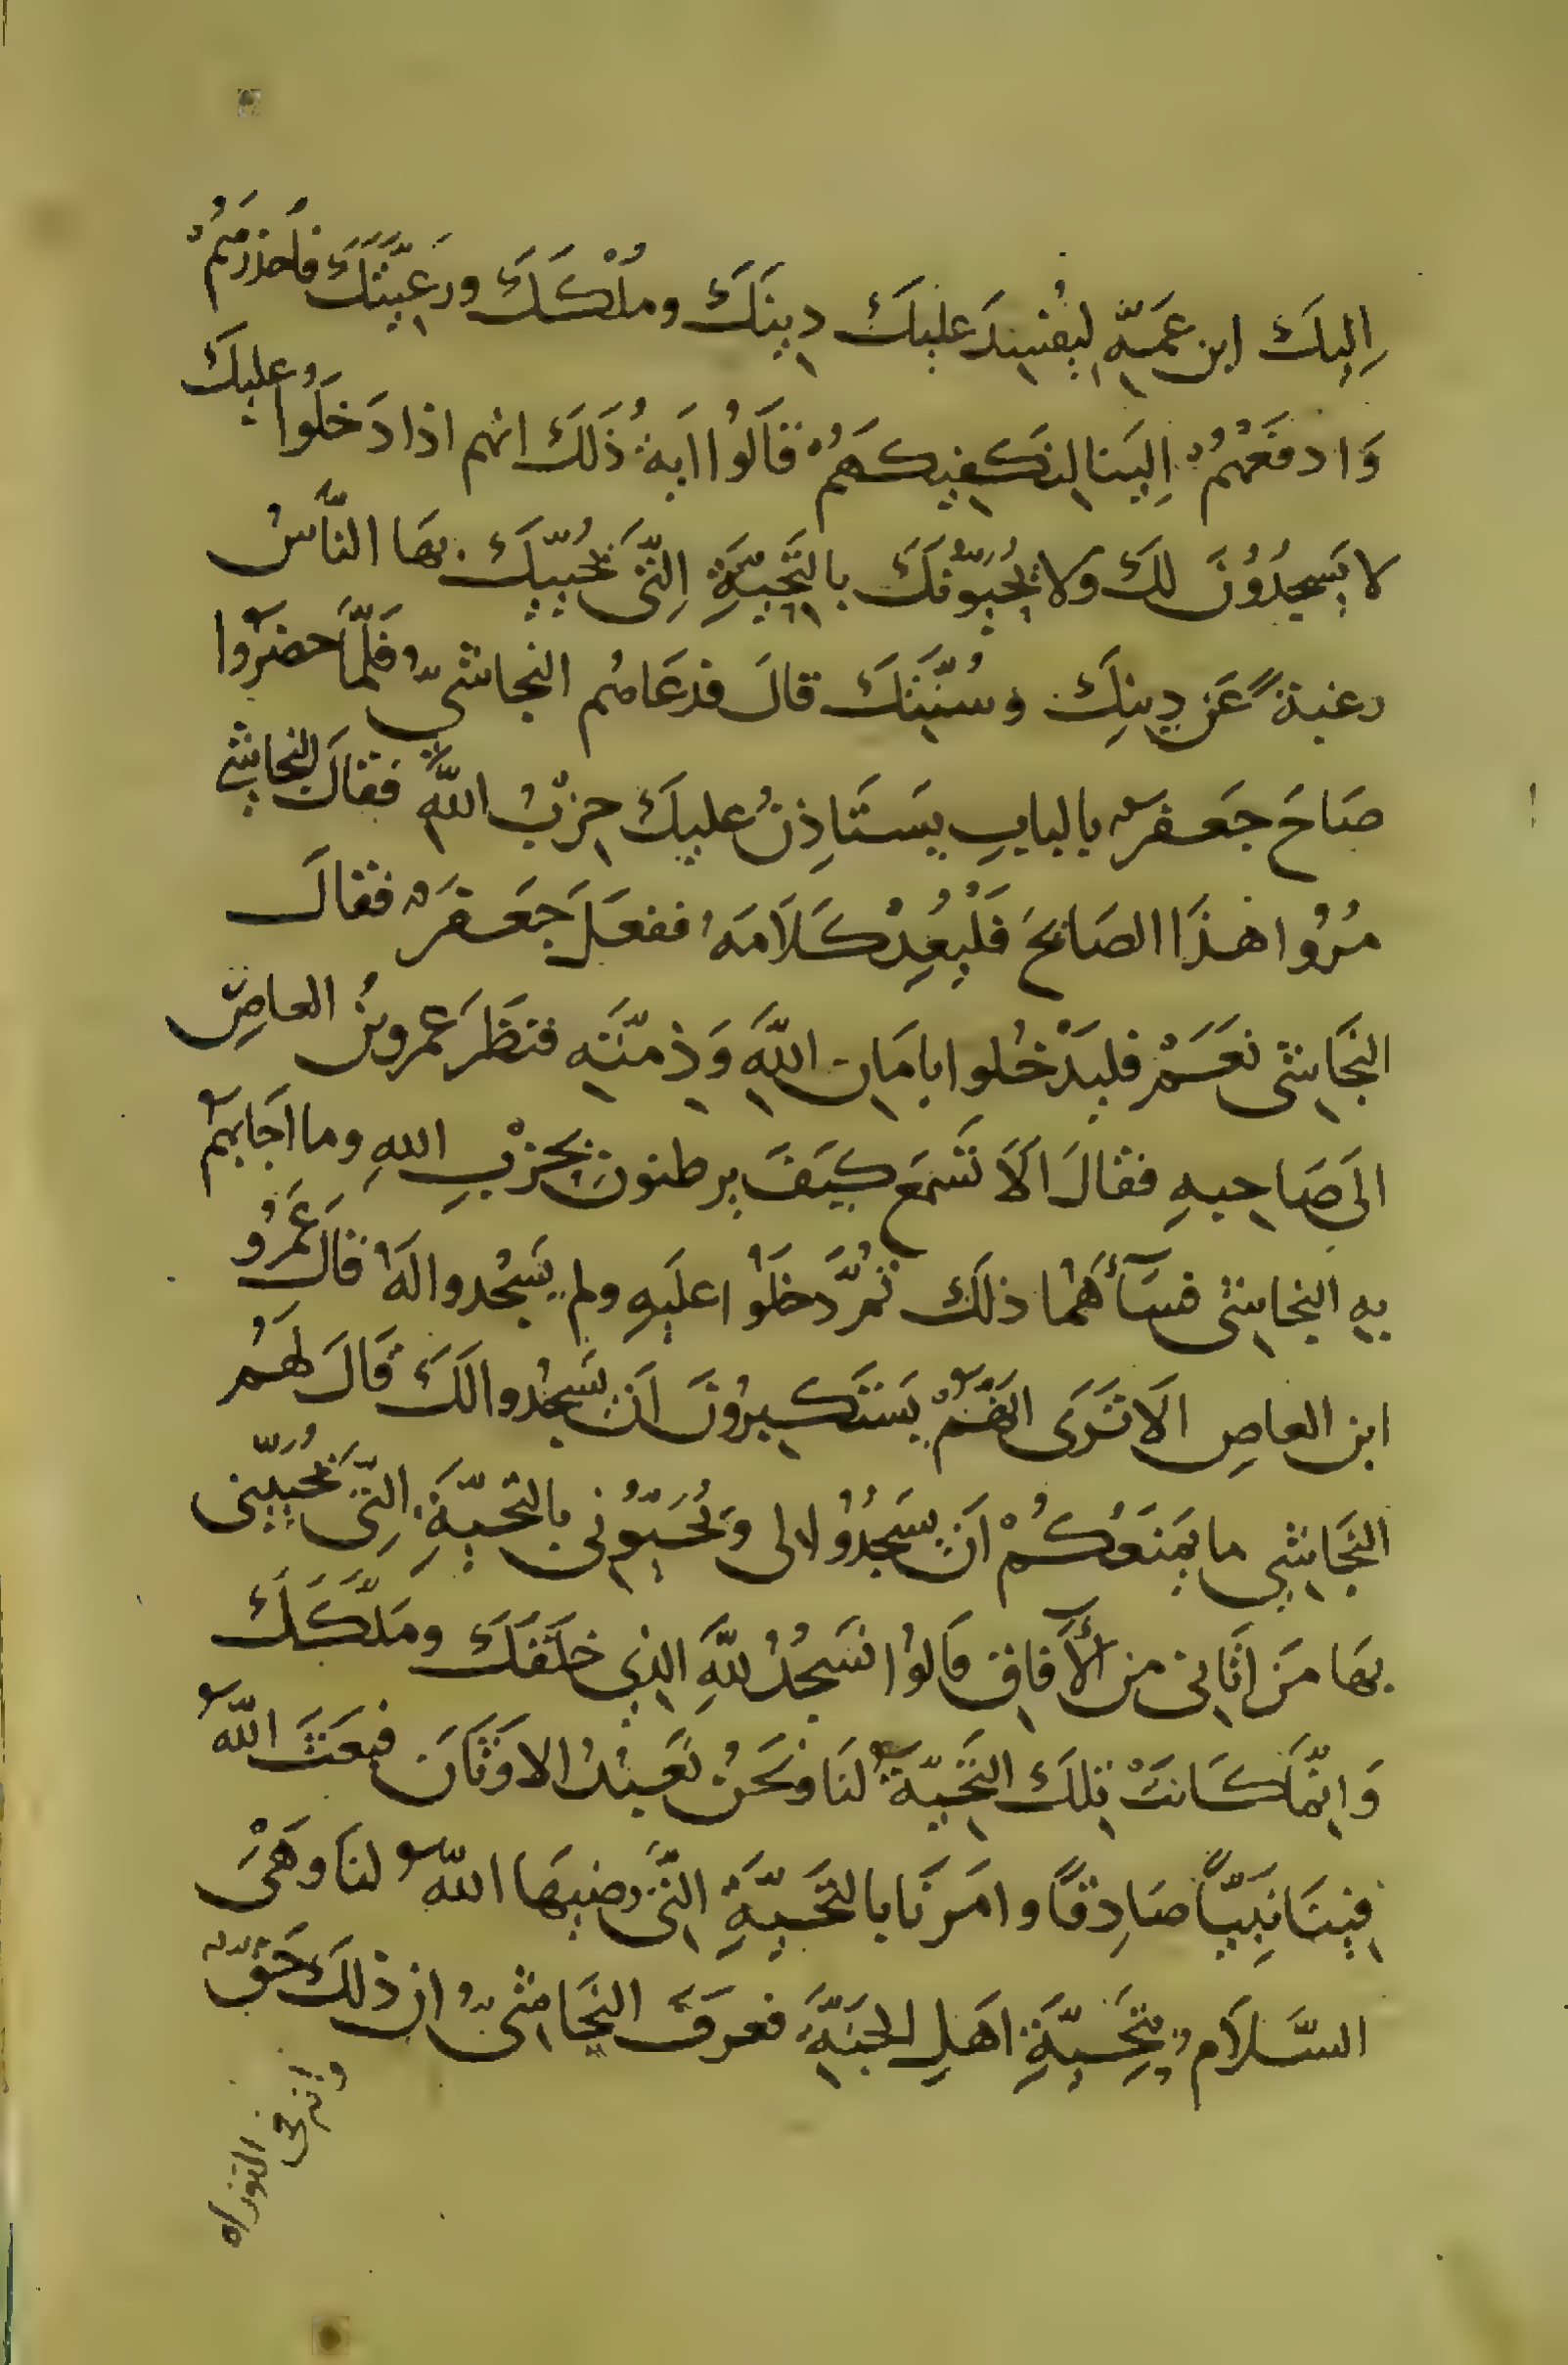 اِلیكَ ابن عَمِّهِ لیُفسِدَ علیكَ دِینَكَ ومُلْكَكَ ورَعِیَّتَكَ فاَحذَرهُمُ
وَادفَعْهُمُ اِلیَنا لنَكفِیكَهَمُ قاَلوُا اَیةُ ذَلكَ انهم اذا دَخَلوُا علیكَ
لا یَسجدُوُنَ لكَ ولا یُحَیّوُنَكَ بالتَحِیَّةِ اِلتَّی یُحَیّیكَ بهَا النَّاسُ
رغبةً عَن دِینِكَ وسُنَّتَكَ قالَ فدعَاهُم النجاشیّ فَلمَّا حضَرُوا
صَاحَ جَعَفر بالبابِ یسَتَاذِنُ علیكَ حِزْبُ اللهِ فقالَ النجاشِی
مُرُوا هذَا الصَائحَ فَلْیُعِدْ كَلاَمَهُ ففعَلَ جَعَفرَ فقالَ
النَجَاشی نعَمَْ فلیَدْخُلوا بامَانِ اللهَِ وَذِمَّتَهِ فنظَرَ عمروبنُ العاصِ
الَی صَاحِبهِ فقالَ الَا تسَمَع كیَفَ یرطنونَ بحِزْبِ اللهِ وما اَجَابهَمُ
بهِ النجاشی فسَآءَهُما ذلكَ ثمَُّ دخَلَوُْا علَیهِ ولم یَسَجُدوا لَهُ فَالَ عَمَرُو
ابن العاصِ الَا تَرَی انهَّمُْ یَستَكبرُونَ اَن یَسجُدوا لكَ قَالَ لهَمُ
النَجَاشِی ما یمَنَعُكُمْ اَنْ یسَجُدُوُا لی وَتُحَیّوُنی بالتحیَّةِ اِلتَّی یُحَیّینی
بهَا مَن اَتَانی من الآفاقِ قاَلوُا نسَجُدُ للهَِ الذِی خلَقَكَ ومَلَّكَكَ
وَانِمَّاَ كَانتَْ تِلكَ التَحِیَّةُ لنَا ونحَنُ نَعَبُدُ الاوَثَانَ فبعَثَ اللهُ
فِینَا نَبِیّاً صَادِقاً وامَرنَا بالتَحَیَّةِ التَّی رضیهَا اللهُ لنَا وَهَیْ
السَّلاَمُ تحَِیَّةِ اهَلِ الجنَةَِّ فعرفَ النجَاشیّ ان ذلكَ حَقّ
وانه فی التوراه